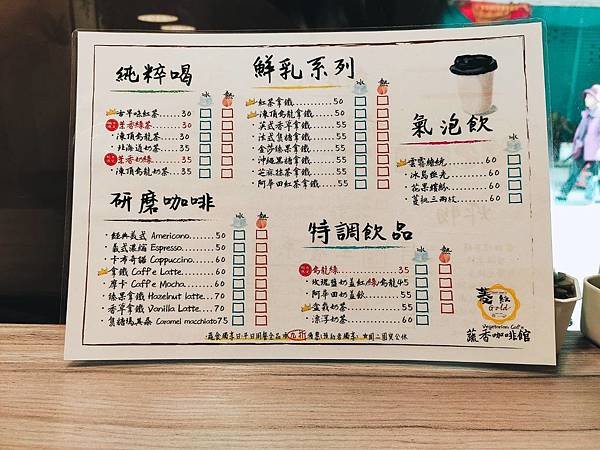 純粹喝
冰 熱
古早味紅茶.....30
葉香綠茶.....30
凍頂烏龍.....30
北海道奶茶.....35
葉香奶綠.....35
凍頂烏龍奶茶.....35
研磨咖啡
冰 熱
經典美式 Americano.......50
義式濃縮 Espresso.......50
卡布奇諾 Cappuccino.......60
拿鐵 Caffe Latte.......60
摩卡 Caffe Mocha.......60
榛果拿鐵 Hazelnut latte...70
香草拿鐵 Vanilla Latte....70
焦糖瑪其朵 Caramel macchiato75
鮮乳系列
冰 熱
紅茶拿鐵.........50
凍頂烏龍拿鐵......50
英式香草拿鐵......55
法式焦糖拿鐵......55
金莎榛果拿鐵......55
沖繩黑糖拿鐵......55
芝麻抹茶拿鐵......55
阿華田紅茶拿鐵.....55
特調飲品
冰 熱
烏龍綠.........35
玫瑰鹽奶蓋紅/綠/烏龍45
阿華田奶蓋飲......55
盆栽奶茶.........60
漂浮奶茶.........60
氣泡飲
冰
雲霧繚繞.......60
冰島極光.......60
花果繽紛.......60
Gold
Vegetarian Caf'e
蔬香咖啡館